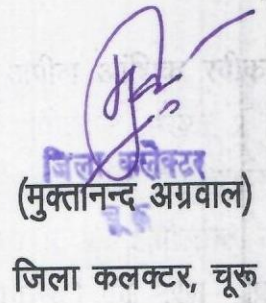 जिला कलेक्टर
(मुक्तानन्द अग्रवाल)
चूरू
जिला कलक्टर, चूरू